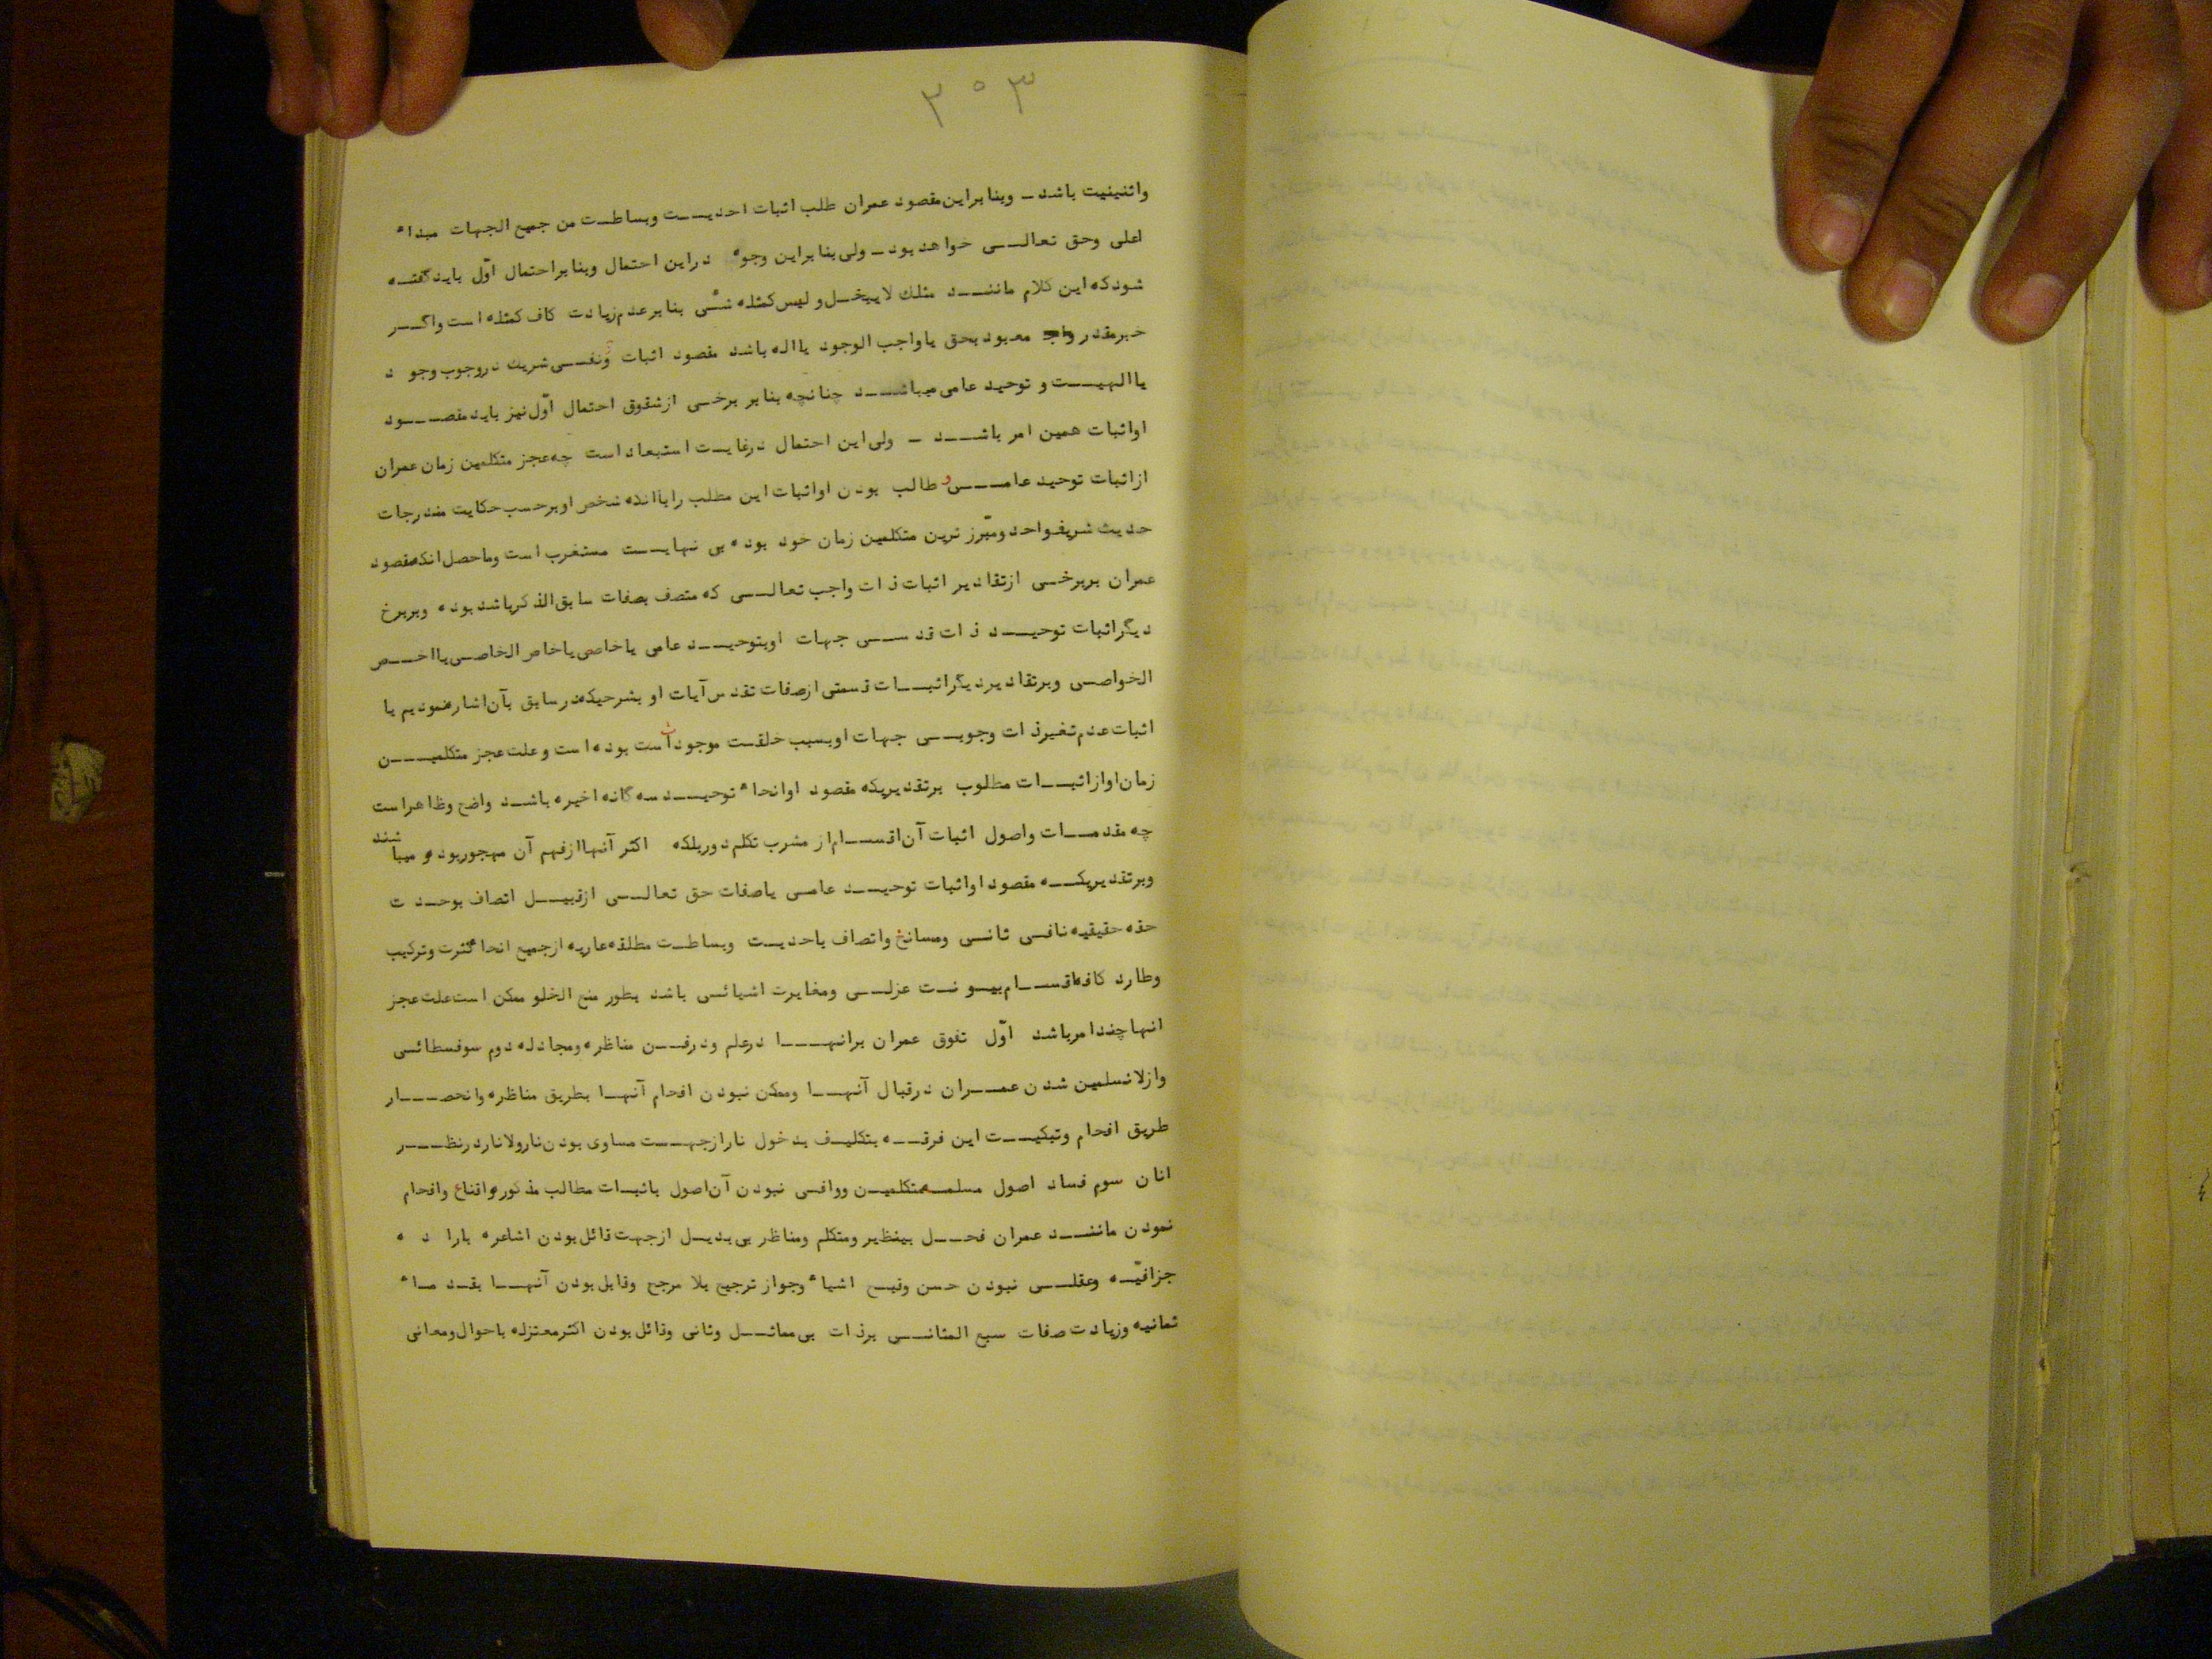 ۳۰۳
واثنینیت باشد ــ وبنابراین مقصود عمران طلب اثبات احدیــت وبساطــت من جمیع الجهات مبداء
اعلی وحق تعالــی خواهد بود ــ ولی بنابراین وجوه دراین احتمال وبنابراحتمال اوّل باید گفتــه
شود که این کلام ماننــد مثلك لایبخــل و لیس کمثله شئی بنابرعدم زیادت کاف کمثله است واگــر
خبرمقدر معبود بحق یاواجب الوجود یااله باشد مقصود اثبات ونفــی شریك دروجوب وجود
یاالهیــت و توحید عامی میباشــد چنانچه بنابر برخــی ازشقوق احتمال اوّل نیز باید مقصــود
اواثبات همین امر باشــد ــ ولی این احتمال درغایــت استبعاد است چه عجز متکلمین زمان عمران
ازاثبات توحید عامــی و طالب بودن اواثبات این مطلب راباانکه شخص اوبرحسب حکایت مندرجات
حدیث شریف واحد ومبّرز ترین متکلمین زمان خود بوده بی نهایــت مستغرب است وماحصل انکه مقصود
عمران بربرخــی ازتقادیر اثبات ذات واجب تعالــی که متصف بصفات سابق الذکرباشد بوده وبربرخ
دیگراثبات توحیــد ذات قدســی جهات اوبتوحیــد عامی یاخاصی یاخاص الخاصــی یااخــص
الخواصــی وبرتقادیر دیگراثبــات قسمتی ازصفات تقدس آیات او بشرحیکه درسابق بآن اشاره نمودیم یا
اثبات عدم تغیرذات وجوبــی جهات اوبسبب خلقــت موجودات است بوده است وعلت عجز متکلمیــن
زمان اوازاثبــات مطلوب برتقدیریکه مقصود اوانحاء توحیــد سه گانه اخیره باشــد واضح وظاهراست
چه مقدمــات واصول اثبات آن اقســام از مشرب تکلم دوربلکه اکثر آنهاازفهم آن مهجوربوده و میباشند
وبرتقدیریکــه مقصود اواثبات توحیــد عامــی یاصفات حق تعالــی ازقبیــل اتصاف بوحــدت
حقه حقیقیه نافــی ثانــی ومسانخ واتصاف باحدیــت وبساطــت مطلقه عاریه ازجمیع انحاء کثرت وترکیب
وطارد کافه اقســام بینونــت عزلــی ومغایرت اشیائــی باشد بطور منع الخلو ممکن است علت عجز
انها چند امرباشد اوّل تفوق عمران برانهــا درعلم ودرفــن مناظره ومجادله دوم سوفسطائــی
وازلانسلمین شدن عمــران درقبال آنهــا وممکن نبودن افحام آنهــا بطریق مناظره وانحصــار
طریق افحام وتبکیــت این فرقــه بتکلیــف بدخول نارازجهــت مساوی بودن نارولانار درنظــر
انان سوم فساد اصول مسلمــه متکلمیــن ووافــی نبودن آن اصول باثبــات مطالب مذکوره واقناع وافحام
نمودن ماننــد عمران فحــل بینظیر ومتکلم ومناظر بی بدیــل ازجهت قائل بودن اشاعره باراده
جزافیّــه وعقلــی نبودن حسن وقبــح اشیاء وجواز ترجیح بلا مرجح وقایل بودن آنهــا بقــدماء
ثمانیه وزیادت صفات سبع المثانــی برذات بی مماثــل وثانی وقائل بودن اکثرمعتزله باحوال ومعانی